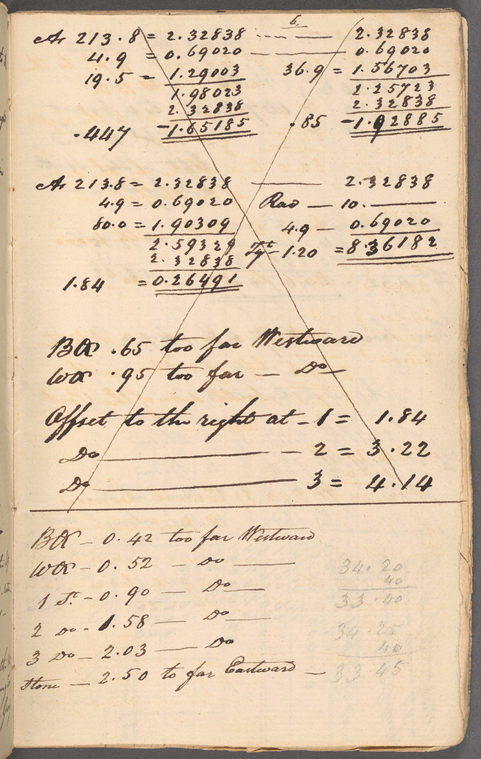 6.
As 213.8 = 2.32838 — 2.32838
4.9 = 0.69020 — 0.69020
19.5 = 1.29003 36.9 = 1.56703
1.98023 2.25723
2.32838 2.32838
.447 -1.65185 .85 -1.92885
As 213.8 = 2.32838 — 2.32838
4.9 = 0.69020 Rad — 10.
80.0 = 1.90309 4.9 — 0.69020
2.59329 1.20 = 8.36182
2.32838
1.84 = 0.26491
.65 too far Westward
.95 too far — Do
Offset to the right at — 1 = 1.84
Do — 2 = 3.22
Do — 3 = 4.14
0.42 too far Westward
0.52 — Do —
1 St. — 0.90 — Do —
2 Do — 1.58 — Do
3 Do — 2.03 — Do
Stone — 2.50 to far Eastward —
34.20
40
33.40
34.25
40
33 45